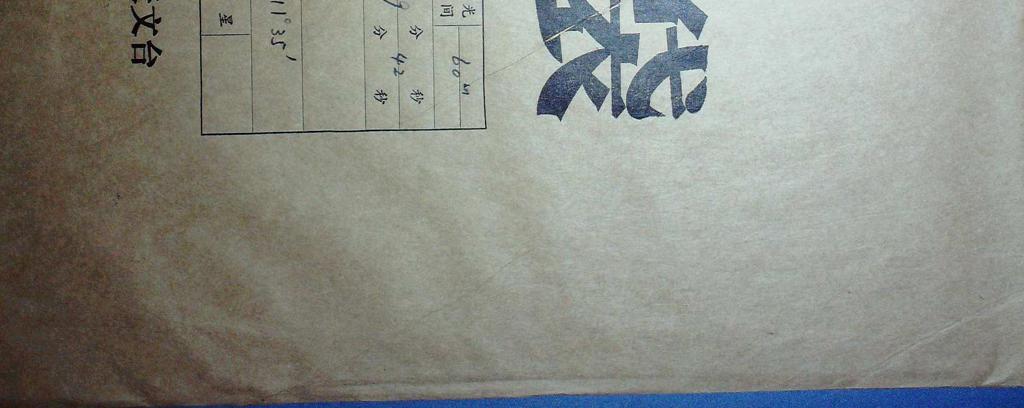 袋
光间 60m
分 秒
9 分 42 秒
11°35′
星
文台